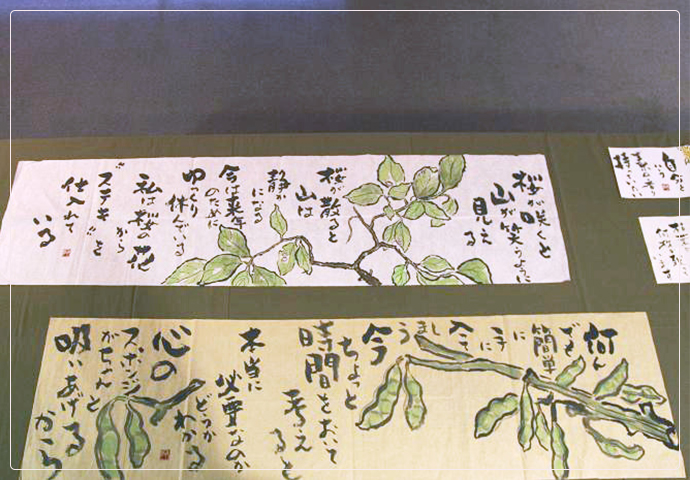 桜が咲くと
山が笑うように
見える
桜が散ると
山は
静か
になる
今は来年
のために
ゆっくり
休んでいる
私は桜の花
から
“ステキ”を
仕入れて
いる
何ん
でも
簡単
に
手に
入って
しまう
今
ちょっと
時間をおいて
考え
ると
本当に
必要なのか
どうか
わかる
心の
スポンジ
がちゃんと
吸いあげる
から